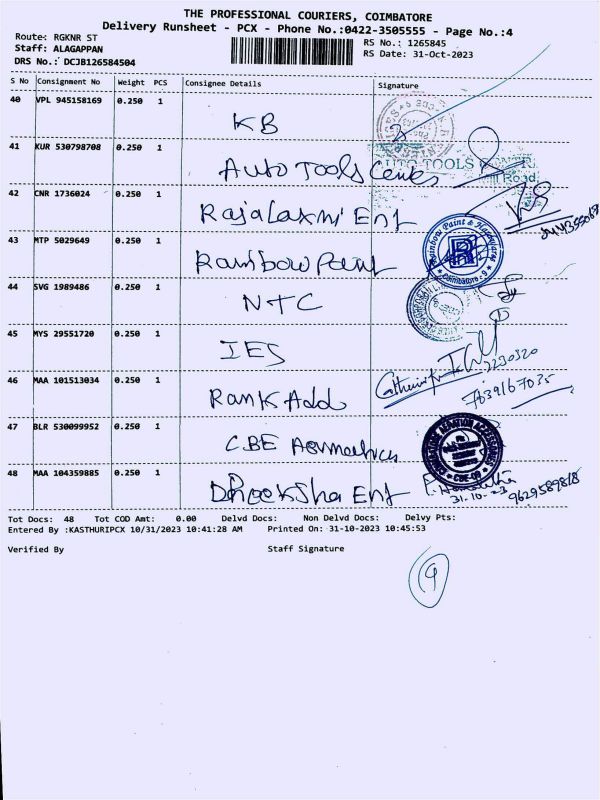 THE PROFESSIONAL COURIERS, COIMBATORE
Delivery Runsheet - PCX - Phone No.:0422-3505555 - Page No.:4
Route: RGKNR ST
RS No.: 1265845
Staff: ALAGAPPAN
RS Date: 31-Oct-2023
DRS No.: DCJB126584504
S No Consignment No Weight PCS Consignee Details Signature
40 VPL 945158169 0.250 1 KB
41 KUR 530798708 0.250 1 Auto Tools Center
AUTO TOOLS CENTRE
Mill Road
42 CNR 1736024 0.250 1 Rajalaxmi Ent
43 MTP 5029649 0.250 1 Rainbow Paint
Rainbow Paint & Hardwares
Coimbatore - 9
44 SVG 1989486 0.250 1 NTC
45 MYS 29551720 0.250 1 IES
46 MAA 101513034 0.250 1 Rank Add
7639167035
47 BLR 530099952 0.250 1 CBE
CBE-09
48 MAA 104359885 0.250 1 Dheeksha Ent
31.10.23
9629589818
Tot Docs: 48 Tot COD Amt: 0.00 Delvd Docs: Non Delvd Docs: Delvy Pts:
Entered By :KASTHURIPCX 10/31/2023 10:41:28 AM Printed On: 31-10-2023 10:45:53
Verified By Staff Signature
9